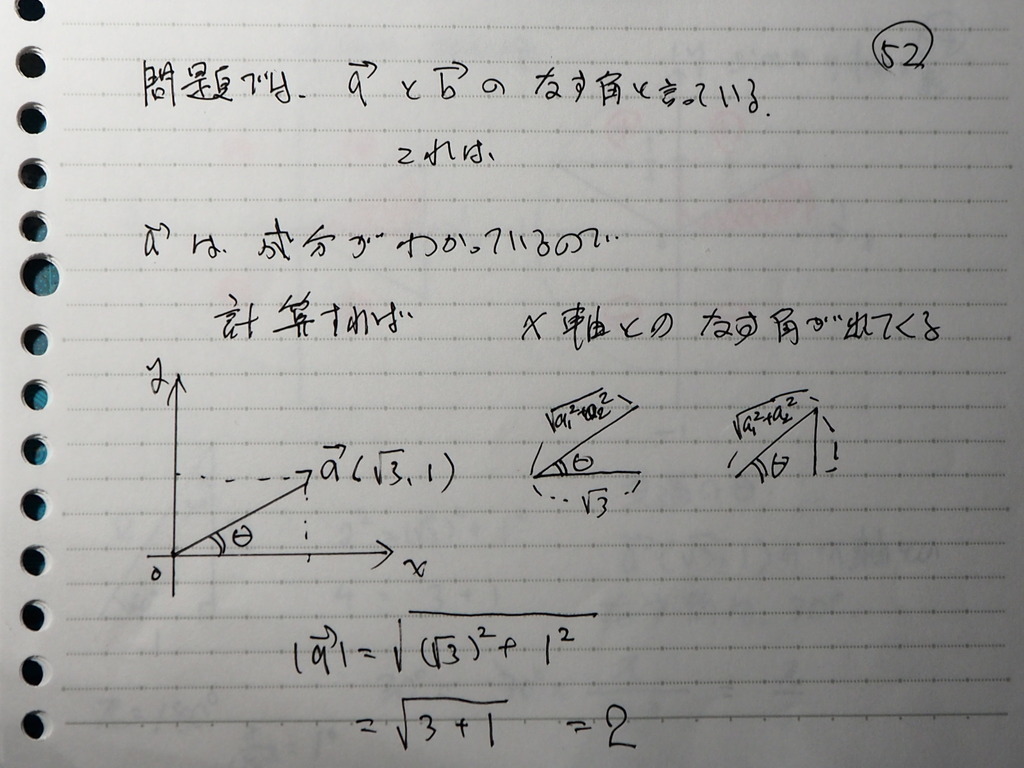 52
問題では、a→とb→のなす角と言っている.
これは、
a→は、成分がわかっているので
計算すれば x軸とのなす角が出てくる
y
a→(√3, 1)
θ
0
x
√a₁²+a₂²
θ
√3
√a₁²+a₂²
θ
1
|a→| = √(√3)²+1²
= √3+1 = 2